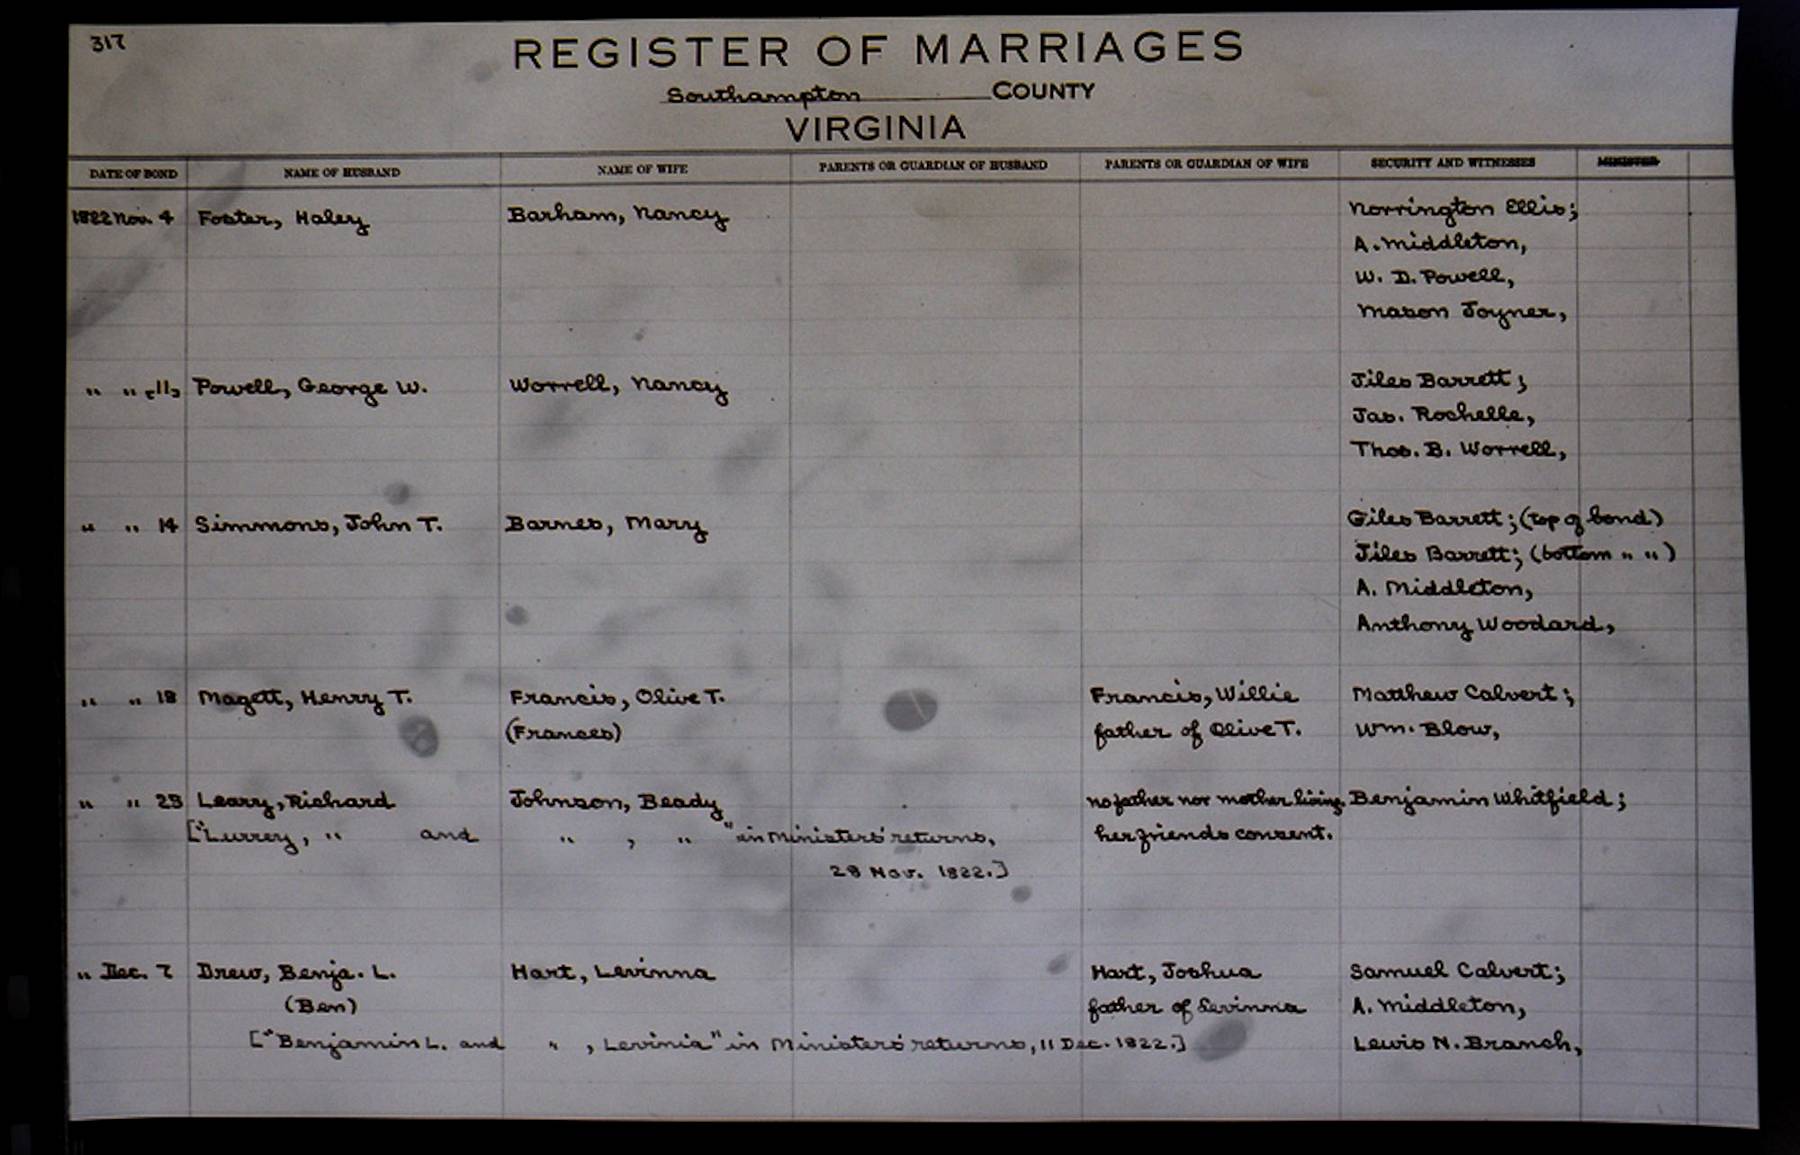 317
REGISTER OF MARRIAGES
Southampton COUNTY
VIRGINIA
DATE OF BOND NAME OF HUSBAND NAME OF WIFE PARENTS OR GUARDIAN OF HUSBAND PARENTS OR GUARDIAN OF WIFE SECURITY AND WITNESSES MINISTER
1822 Nov. 4 Foster, Haley Barham, Nancy Norrington Ellis;
A. Middleton,
W. D. Powell,
Mason Joyner,
" " [11] Powell, George W. Worrell, Nancy Jiles Barrett;
Jas. Rochelle,
Thos. B. Worrell,
" " 14 Simmons, John T. Barnes, Mary Giles Barrett; (top of bond)
Jiles Barrett; (bottom " ")
A. Middleton,
Anthony Woodard,
" " 18 Magett, Henry T. Francis, Olive T. Francis, Willie Matthew Calvert;
(Frances) father of Olive T. Wm. Blow,
" " 25 Leary, Richard Johnson, Beady no father nor mother living. Benjamin Whitfield;
["Lurrey, " and " , " " in Ministers' returns, her friends consent.
28 Nov. 1822.]
" Dec. 7 Drew, Benja. L. Hart, Levinna Hart, Joshua Samuel Calvert;
(Ben) father of Levinna A. Middleton,
["Benjamin L. and " , Levinia" in Ministers' returns, 11 Dec. 1822.] Lewis N. Branch,